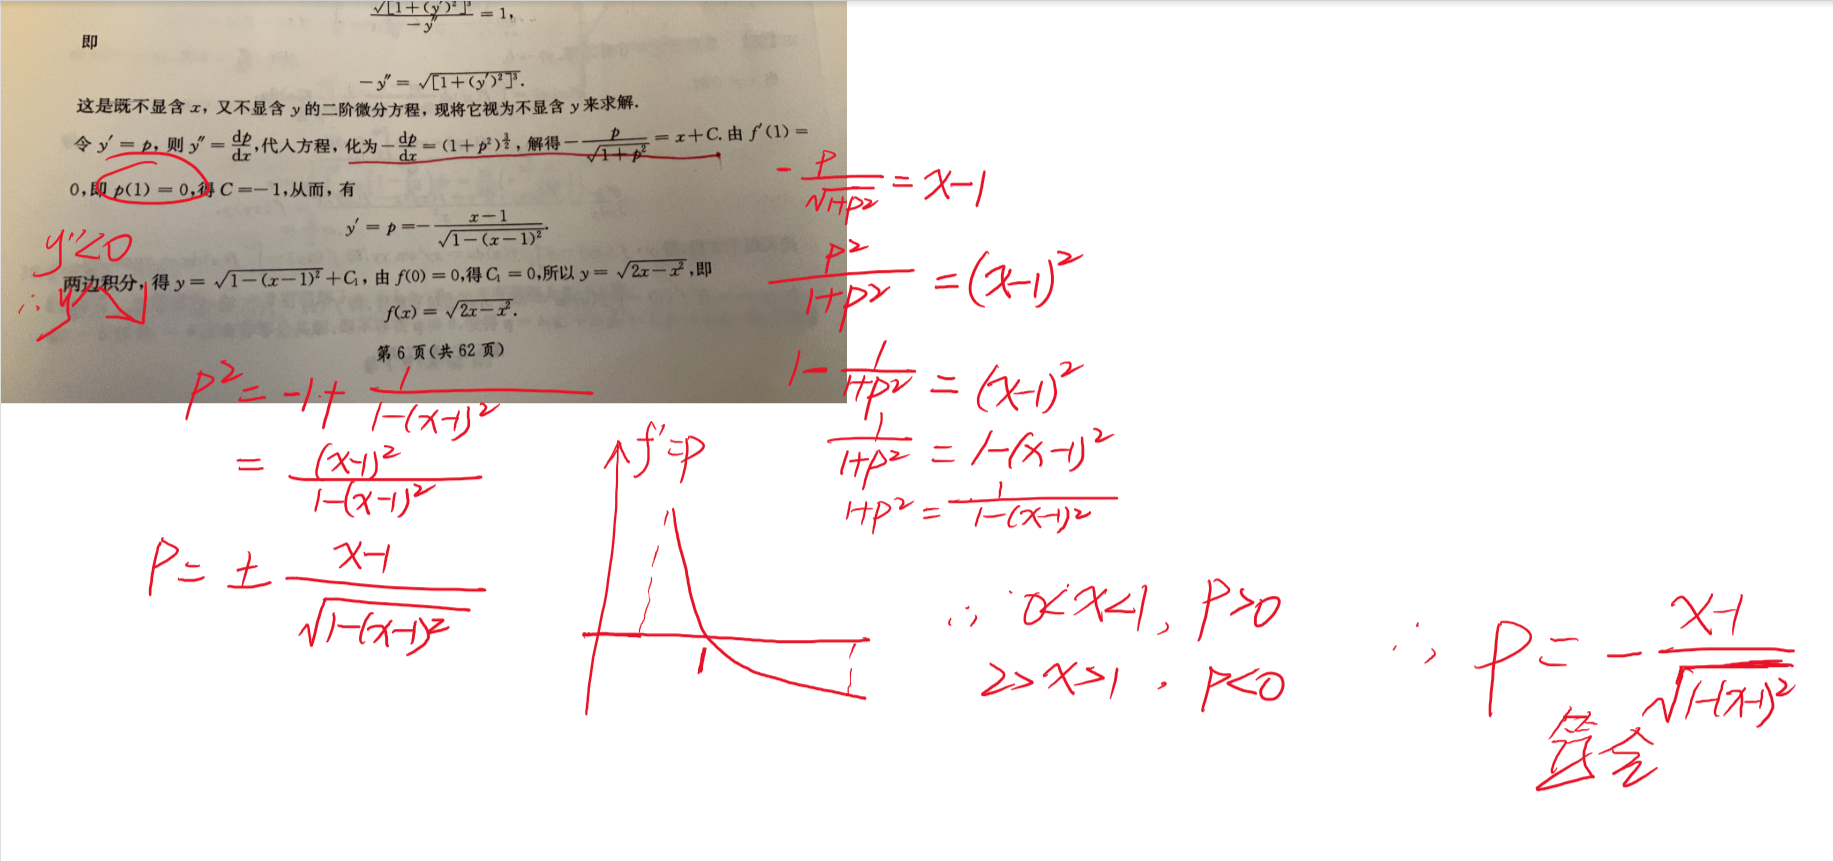 √[1+(y′)²]³ / −y″ = 1,
即
−y″ = √[1+(y′)²]³.
这是既不显含 x，又不显含 y 的二阶微分方程，现将它视为不显含 y 来求解.
令 y′ = p，则 y″ = dp/dx，代入方程，化为 −dp/dx = (1+p²)^(3/2)，解得 −p/√(1+p²) = x+C. 由 f′(1) =
0，即 p(1) = 0，得 C = −1，从而，有
y′ = p = −(x−1)/√(1−(x−1)²).
两边积分，得 y = √(1−(x−1)²) + C₁，由 f(0) = 0，得 C₁ = 0，所以 y = √(2x−x²)，即
f(x) = √(2x−x²).
第 6 页(共 62 页)
y″<0
∴ y′↘
−p/√(1+p²) = x−1
p²/(1+p²) = (x−1)²
1−1/(1+p²) = (x−1)²
1/(1+p²) = 1−(x−1)²
1+p² = 1/(1−(x−1)²)
p² = −1+1/(1−(x−1)²)
= (x−1)²/(1−(x−1)²)
P = ± (x−1)/√(1−(x−1)²)
f′=p
1
∴ 0<x<1, P>0
2>x>1, P<0
∴ P = −(x−1)/√(1−(x−1)²)